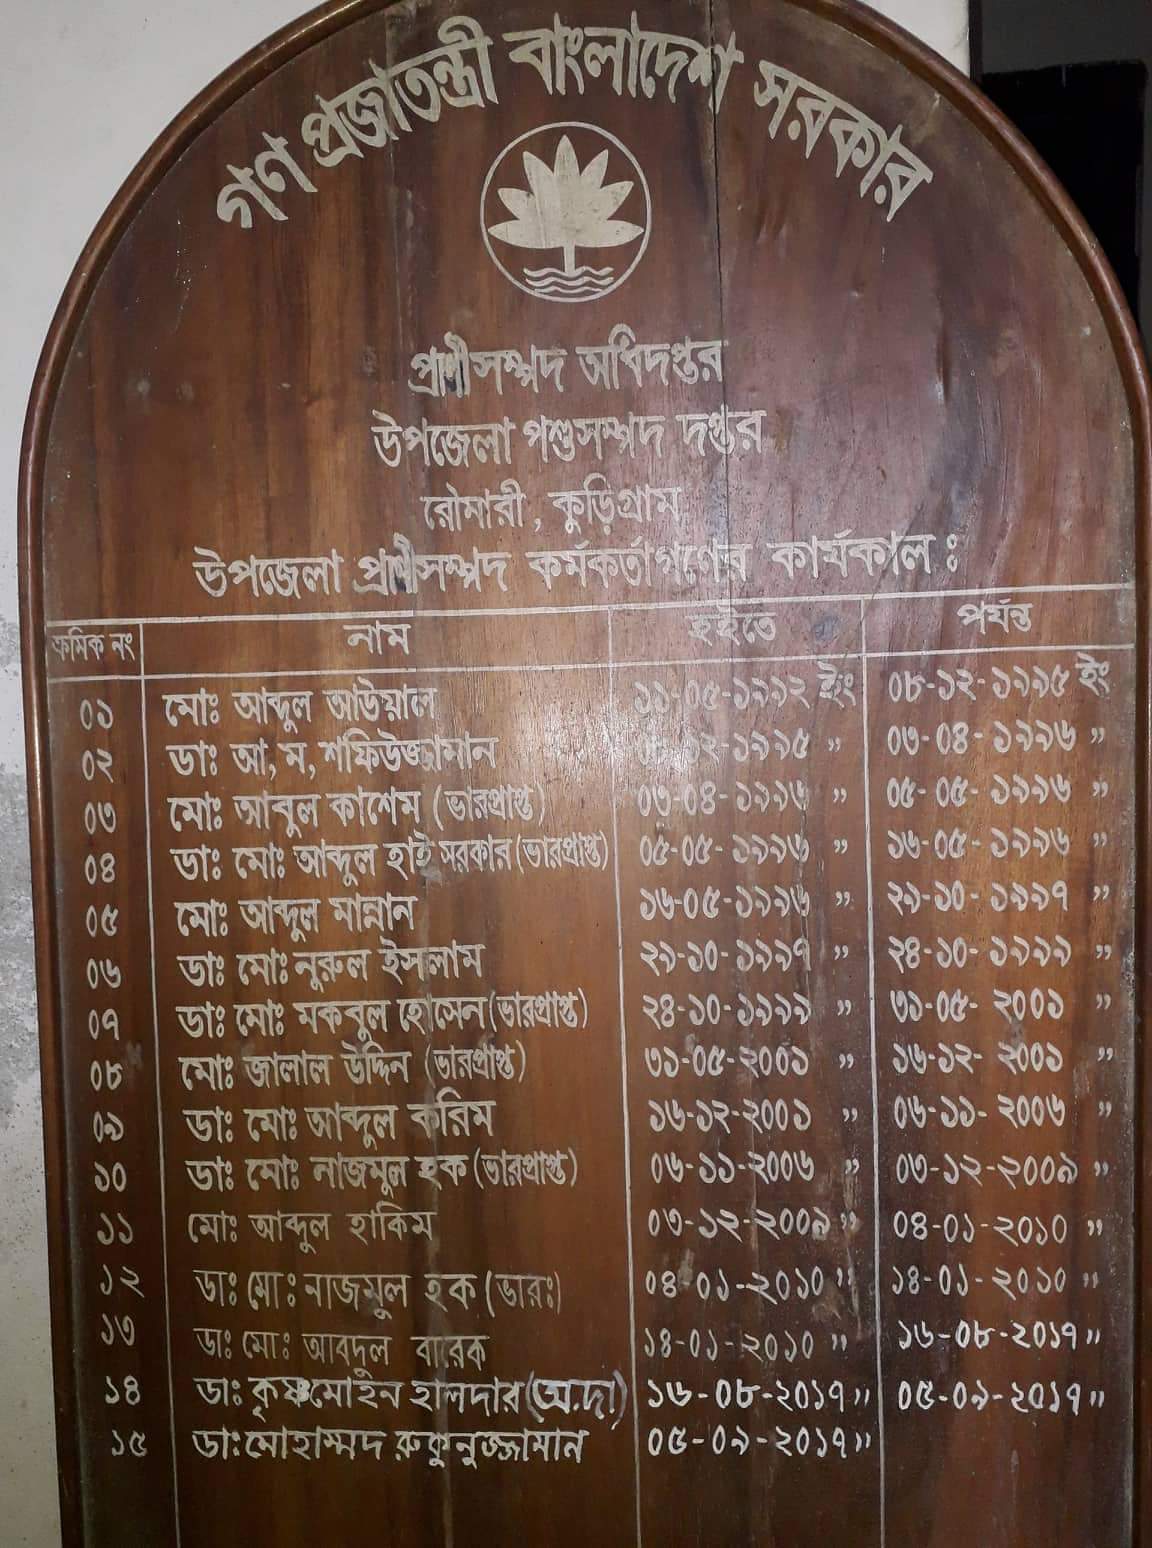 গণ প্রজাতন্ত্রী বাংলাদেশ সরকার
প্রাণীসম্পদ অধিদপ্তর
উপজেলা পশুসম্পদ দপ্তর
রৌমারী, কুড়িগ্রাম
উপজেলা প্রাণীসম্পদ কর্মকর্তাগণের কার্যকাল ঃ
ক্রমিক নং নাম হইতে পর্যন্ত
০১ মোঃ আব্দুল আউয়াল ১১-০৫-১৯৯২ ইং ০৮-১২-১৯৯৫ ইং
০২ ডাঃ আ, ম, শফিউজ্জামান ০৮-১২-১৯৯৫ " ০৩-০৪-১৯৯৬ "
০৩ মোঃ আবুল কাশেম (ভারপ্রাপ্ত) ০৩-০৪-১৯৯৬ " ০৫-০৫-১৯৯৬ "
০৪ ডাঃ মোঃ আব্দুল হাই সরকার (ভারপ্রাপ্ত) ০৫-০৫-১৯৯৬ " ১৬-০৫-১৯৯৬ "
০৫ মোঃ আব্দুল মান্নান ১৬-০৫-১৯৯৬ " ২৯-১০-১৯৯৭ "
০৬ ডাঃ মোঃ নুরুল ইসলাম ২৯-১০-১৯৯৭ " ২৪-১০-১৯৯৯ "
০৭ ডাঃ মোঃ মকবুল হোসেন (ভারপ্রাপ্ত) ২৪-১০-১৯৯৯ " ৩১-০৫-২০০১ "
০৮ মোঃ জালাল উদ্দিন (ভারপ্রাপ্ত) ৩১-০৫-২০০১ " ১৬-১২-২০০১ "
০৯ ডাঃ মোঃ আব্দুল করিম ১৬-১২-২০০১ " ০৬-১১-২০০৬ "
১০ ডাঃ মোঃ নাজমুল হক (ভারপ্রাপ্ত) ০৬-১১-২০০৬ " ০৩-১২-২০০৯ "
১১ মোঃ আব্দুল হাকিম ০৩-১২-২০০৯ " ০৪-০১-২০১০ "
১২ ডাঃ মোঃ নাজমুল হক (ভারঃ) ০৪-০১-২০১০ " ১৪-০১-২০১০ "
১৩ ডাঃ মোঃ আবদুল বারেক ১৪-০১-২০১০ " ১৬-০৮-২০১৭ "
১৪ ডাঃ কৃষ্ণমোহন হালদার (অ.দা) ১৬-০৮-২০১৭ " ০৫-০৯-২০১৭ "
১৫ ডাঃ মোহাম্মদ রুকুনুজ্জামান ০৫-০৯-২০১৭ "